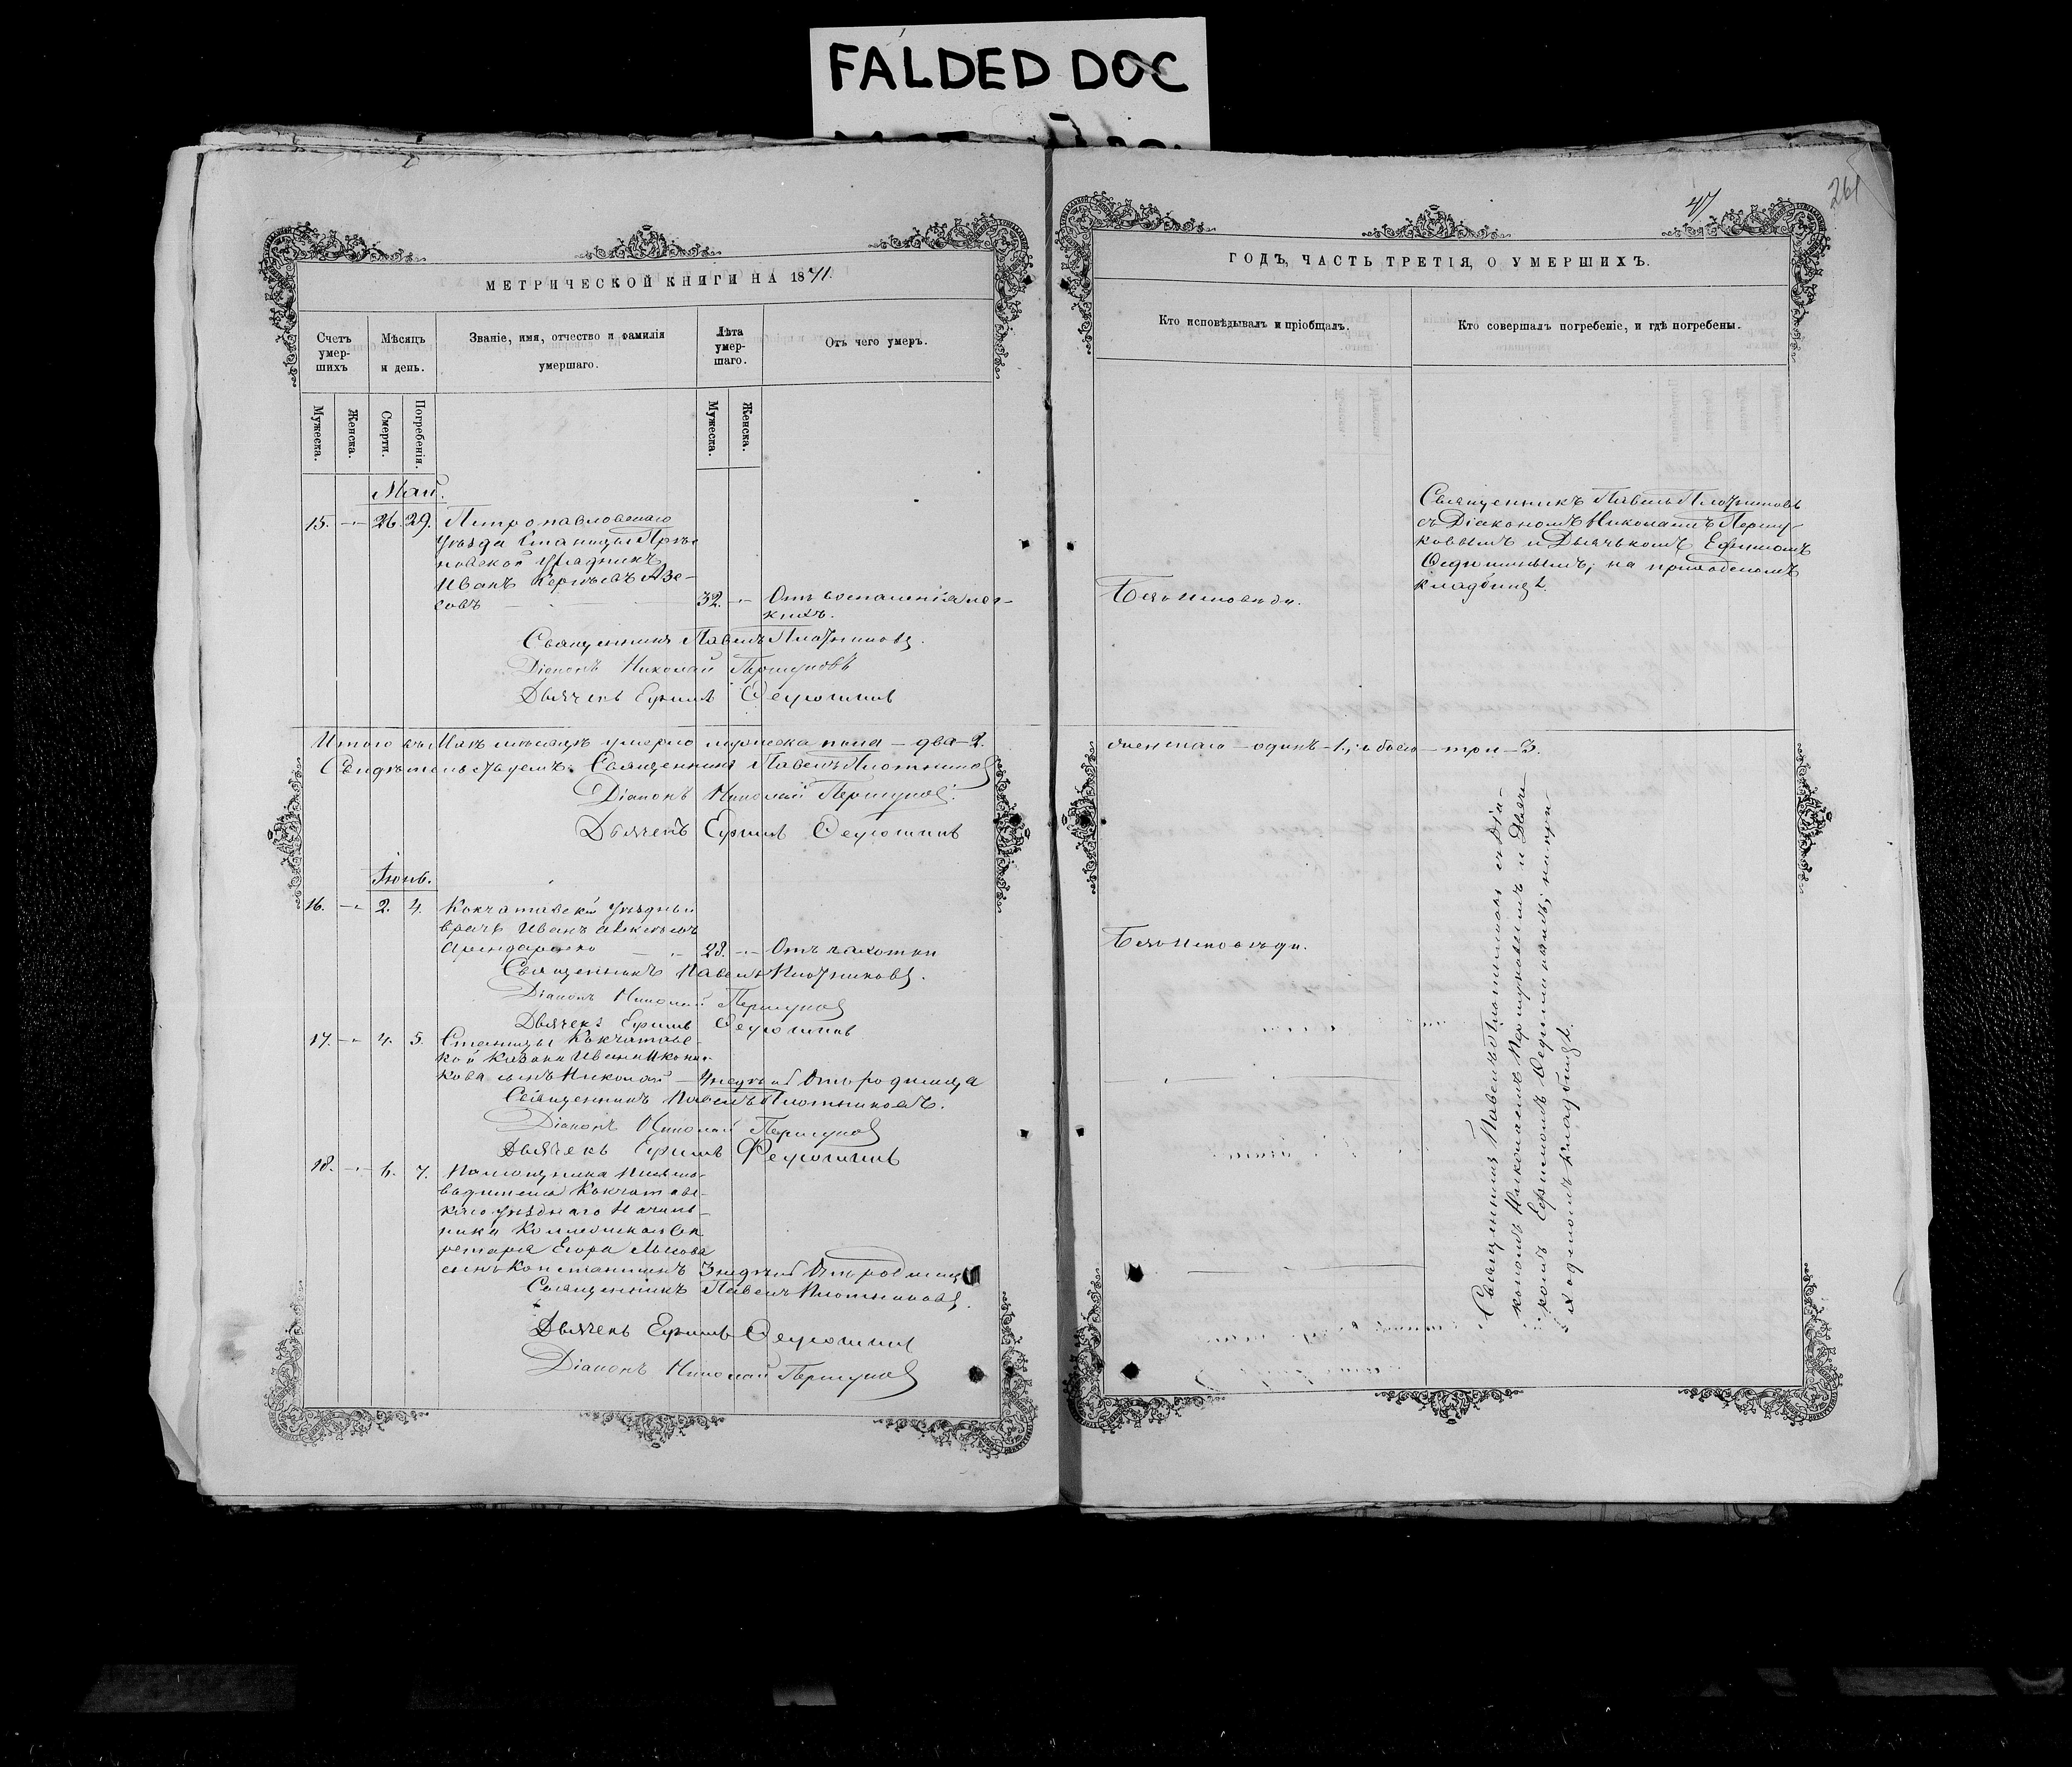 FALDED DOC
261
47
МЕТРИЧЕСКОЙ КНИГИ НА 1871.
Счетъ умер-шихъ
Мѣсяцъ и день.
Званіе, имя, отчество и фамилія умершаго.
Лѣта умер-шаго.
Отъ чего умеръ.
Мужеска.
Женска.
Смерти.
Погребенія.
Мужеска.
Женска.
Май.
15. 26. 29. Петропавловскаго
уѣзда Станицы
урядникъ
Иванъ
совъ 32. Отъ воспаленія лег-
кихъ.
Священникъ Павелъ Плотниковъ.
Діаконъ Николай Першуковъ
Дьячекъ Ефимъ Ѳедюшинъ
Итого въ Маѣ мѣсяцѣ умерло мужеска пола – два – 2.
Свидѣтельствуемъ: Священникъ Павелъ Плотниковъ
Діаконъ Николай Першуковъ.
Дьячекъ Ефимъ Ѳедюшинъ
Іюнь.
16. 2. 4. Кокчетавскій Уѣздный
врачъ Иванъ Алексѣевъ
Арендаренко 28. Отъ чахотки
Священникъ Павелъ Плотниковъ.
Діаконъ Николай Першуковъ
Дьячекъ Ефимъ Ѳедюшинъ
17. 4. 5. Станицы Кокчетавс-
кой Казака Ивана Иконни-
кова сынъ Николай – недѣль Отъ родимца
Священникъ Павелъ Плотниковъ.
Діаконъ Николай Першуковъ
Дьячекъ Ефимъ Ѳедюшинъ
18. 6. 7. Помощника Письмо-
водителя Кокчетавс-
каго уѣзднаго Началь-
ника Коллежскаго Сек
ретаря Егора Львова
сынъ Константинъ 3 недѣль Отъ родимца
Священникъ Павелъ Плотниковъ.
Дьячекъ Ефимъ Ѳедюшинъ
Діаконъ Николай Першуковъ
ГОДЪ, ЧАСТЬ ТРЕТІЯ, О УМЕРШИХЪ.
Кто исповѣдывалъ и пріобщалъ.
Кто совершалъ погребеніе, и гдѣ погребены.
Безъ исповѣди.
Священникъ Павелъ Плотниковъ
съ Діакономъ Николаемъ Першу-
ковымъ и Дьячькомъ Ефимомъ
Ѳедюшинымъ; на приходскомъ
кладбищѣ.
женскаго – одинъ – 1; обоего – три – 3.
Безъ исповѣди.
Священникъ Павелъ Плотниковъ съ Діа-
кономъ Николаемъ Першуковымъ и Дьяч-
комъ Ефимомъ Ѳедюшинымъ; на при-
ходскомъ кладбищѣ.